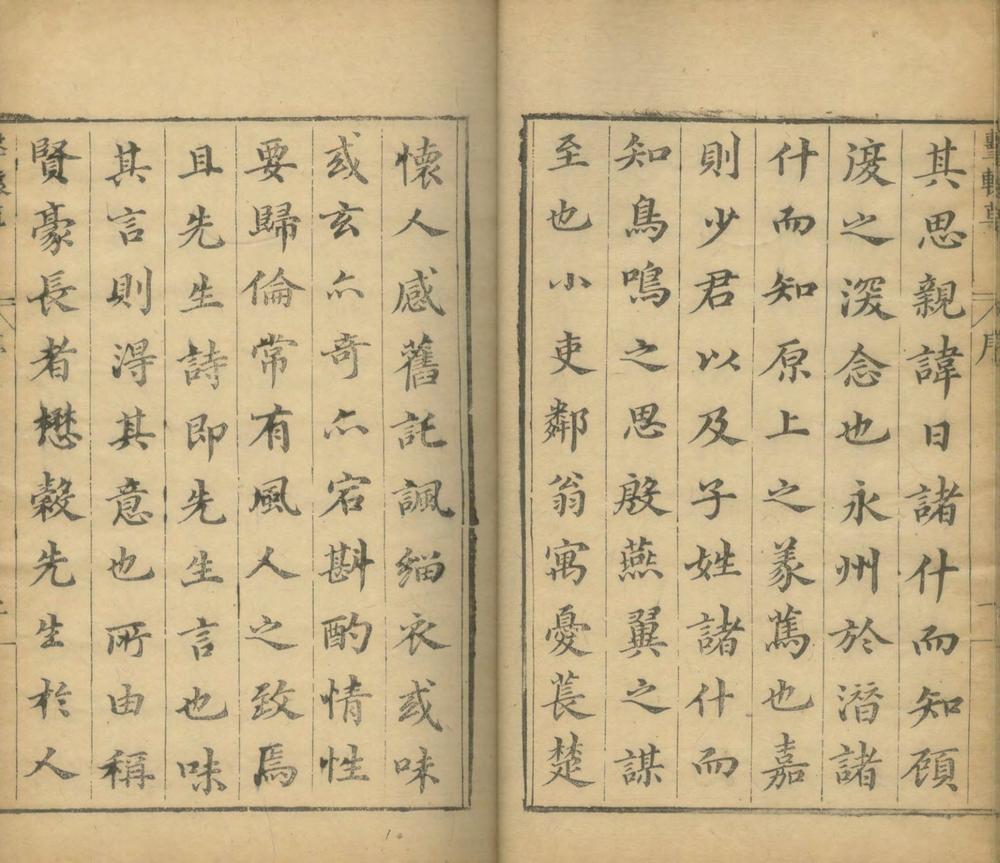 其思親諱日諸什而知顧
復之深念也永州於潛諸
什而知原上之義篤也嘉
則少君以及子姓諸什而
知鳥鳴之思殷燕翼之謀
至也小吏鄰翁寓憂萇楚
懷人感舊託諷緇衣或味
或玄亦奇亦宕斟酌情性
要歸倫常有風人之致焉
且先生詩即先生言也味
其言則得其意也所由稱
賢豪長者懋穀先生於人
序